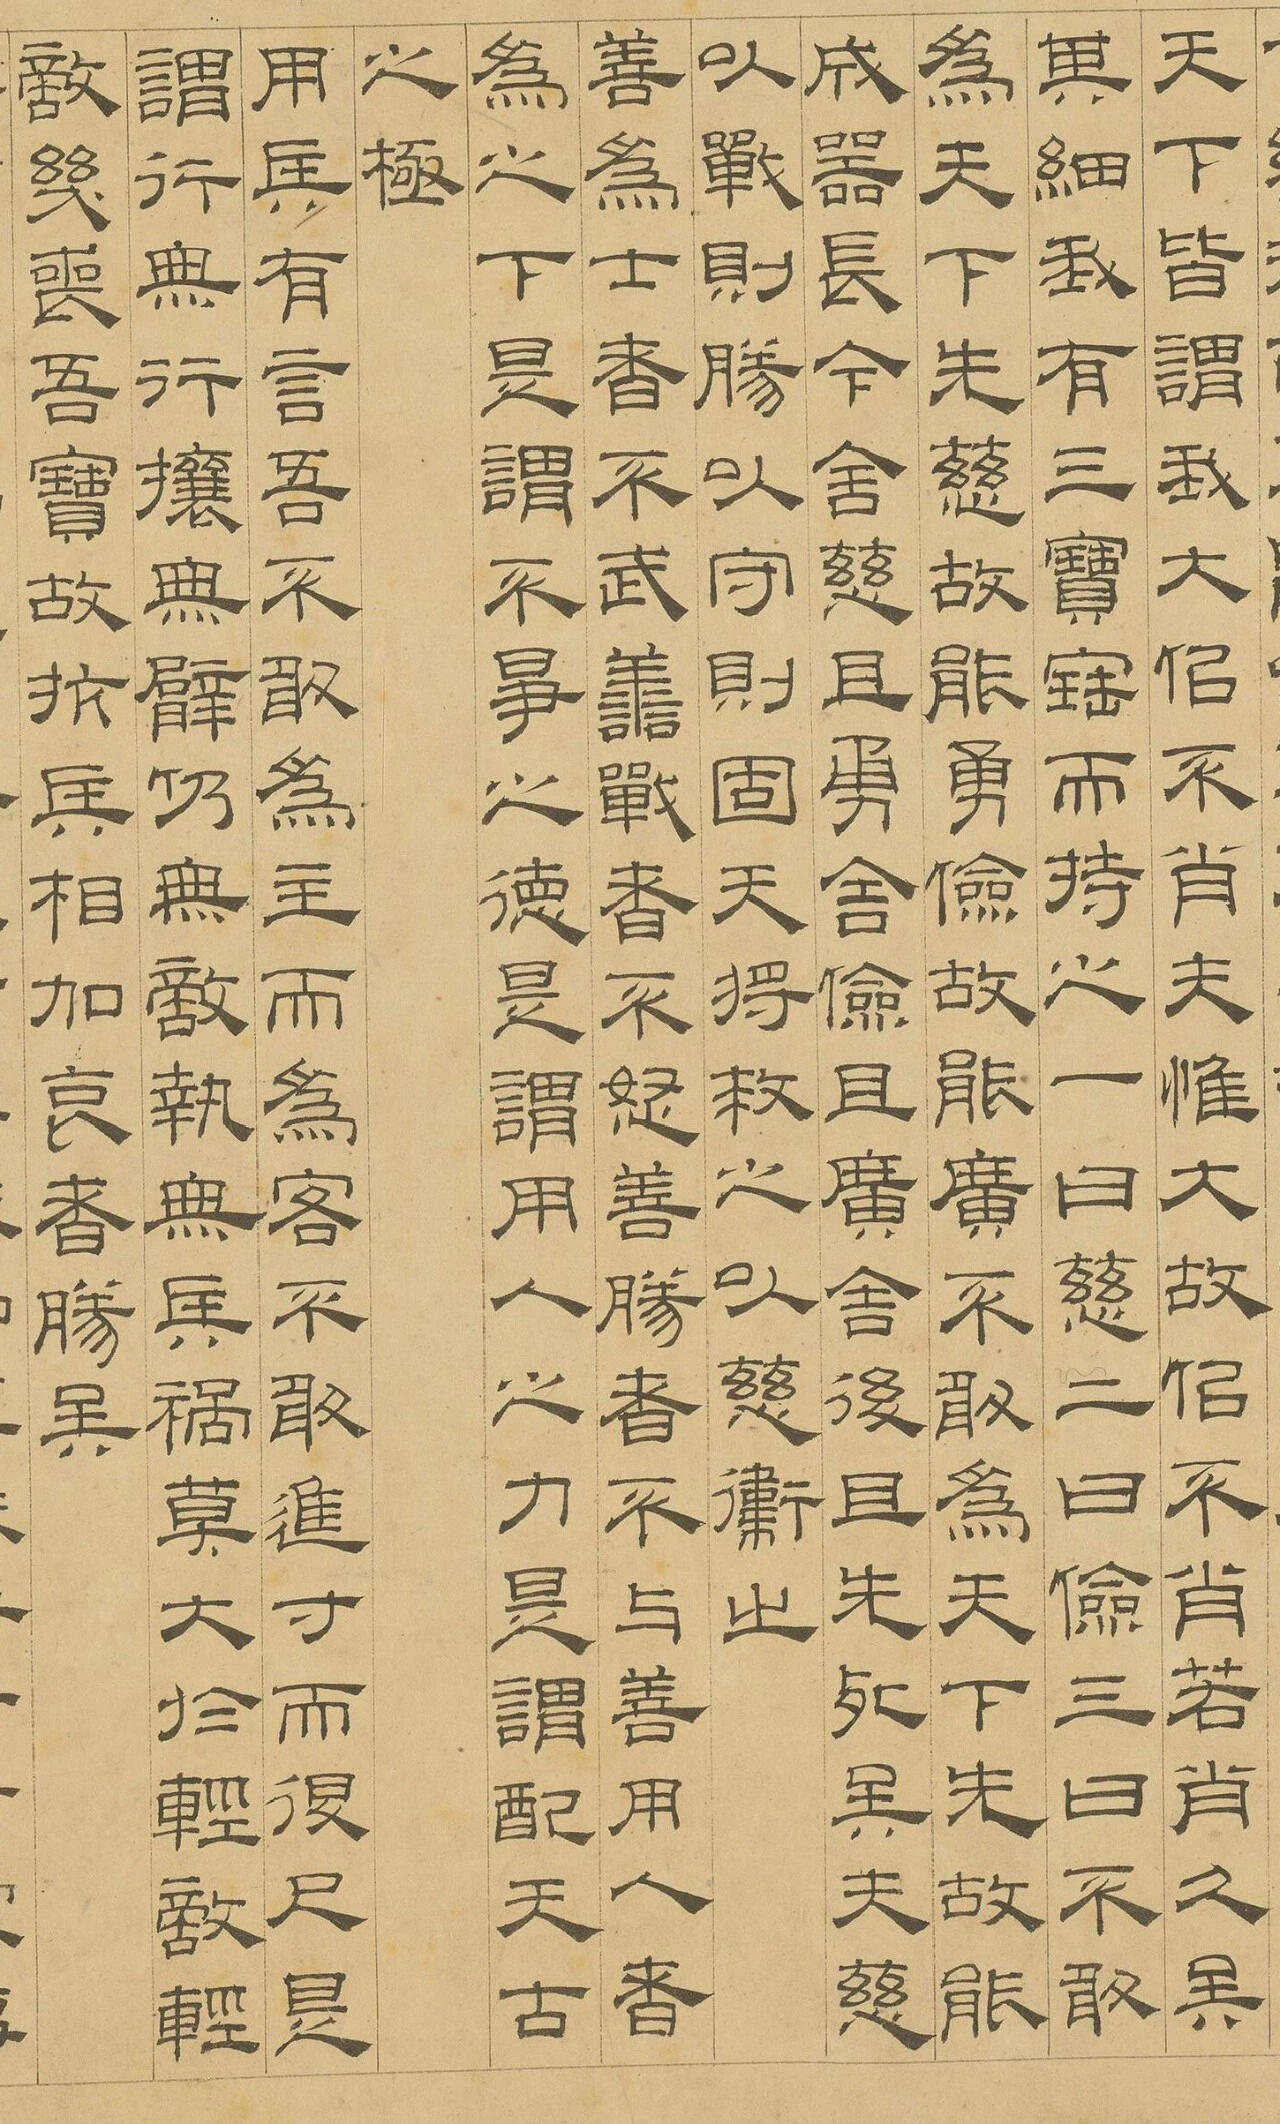 天下皆謂我大似不肖夫惟大故似不肖若肖久矣
其細我有三寶寶而持之一曰慈二曰儉三曰不敢
為天下先慈故能勇儉故能廣不敢為天下先故能
成器長今舍慈且勇舍儉且廣舍後且先死矣夫慈
以戰則勝以守則固天將救之以慈衛之
善為士者不武善戰者不怒善勝者不與善用人者
為之下是謂不爭之德是謂用人之力是謂配天古
之極
用兵有言吾不敢為主而為客不敢進寸而退尺是
謂行無行攘無臂仍無敵執無兵禍莫大於輕敵輕
敵幾喪吾寶故抗兵相加哀者勝矣